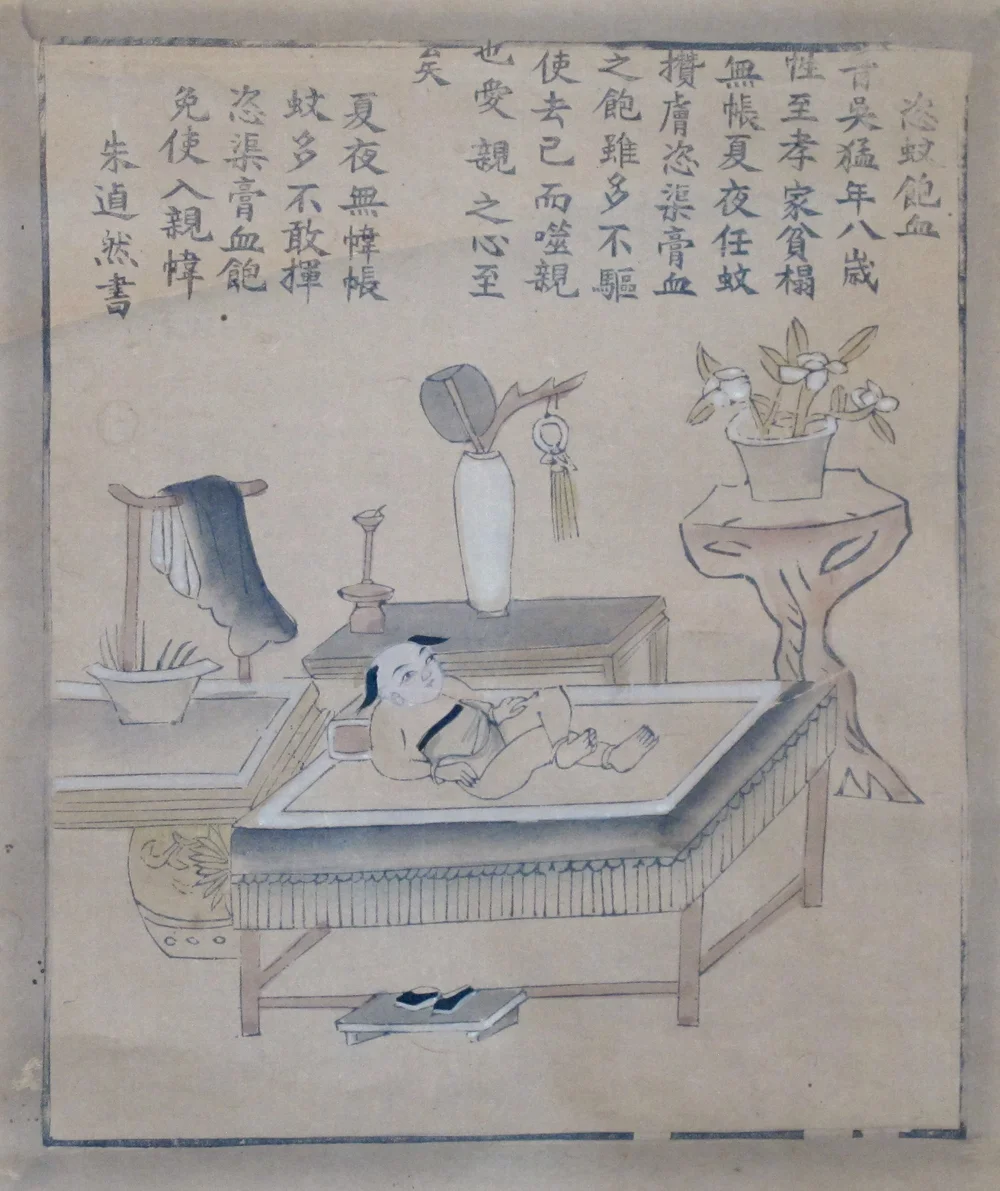 恣蚊飽血
昔吳猛年八歲
性至孝家貧榻
無帳夏夜任蚊
攢膚恣渠膏血
之飽雖多不驅
使去己而噬親
也愛親之心至
矣
夏夜無幃帳
蚊多不敢揮
恣渠膏血飽
免使入親幃
朱逌然書